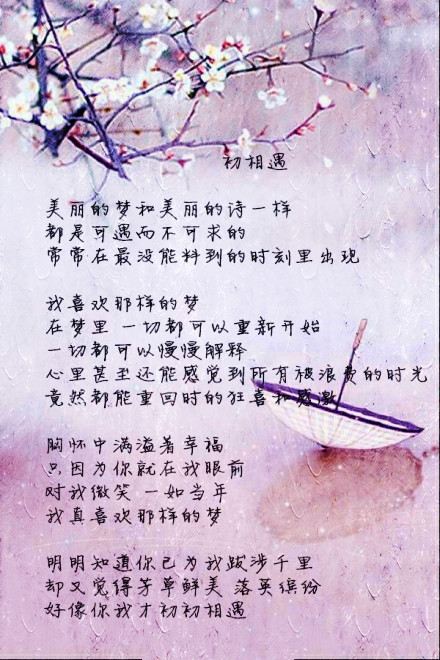 初相遇
美丽的梦和美丽的诗一样
都是可遇而不可求的
常常在最没能料到的时刻里出现
我喜欢那样的梦
在梦里 一切都可以重新开始
一切都可以慢慢解释
心里甚至还能感觉到所有被浪费的时光
竟然都能重回时的狂喜和感激
胸怀中满溢着幸福
只因为你就在我眼前
对我微笑 一如当年
我真喜欢那样的梦
明明知道你已为我跋涉千里
却又觉得芳草鲜美 落英缤纷
好像你我才初初相遇